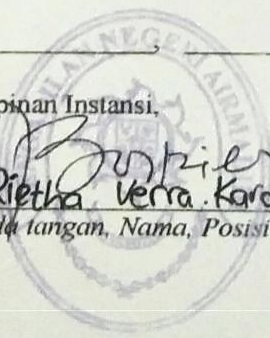 ILAN NEGERI AIRMA
pinan Instansi,
Rietha Verra. Karo
da tangan, Nama, Posisi